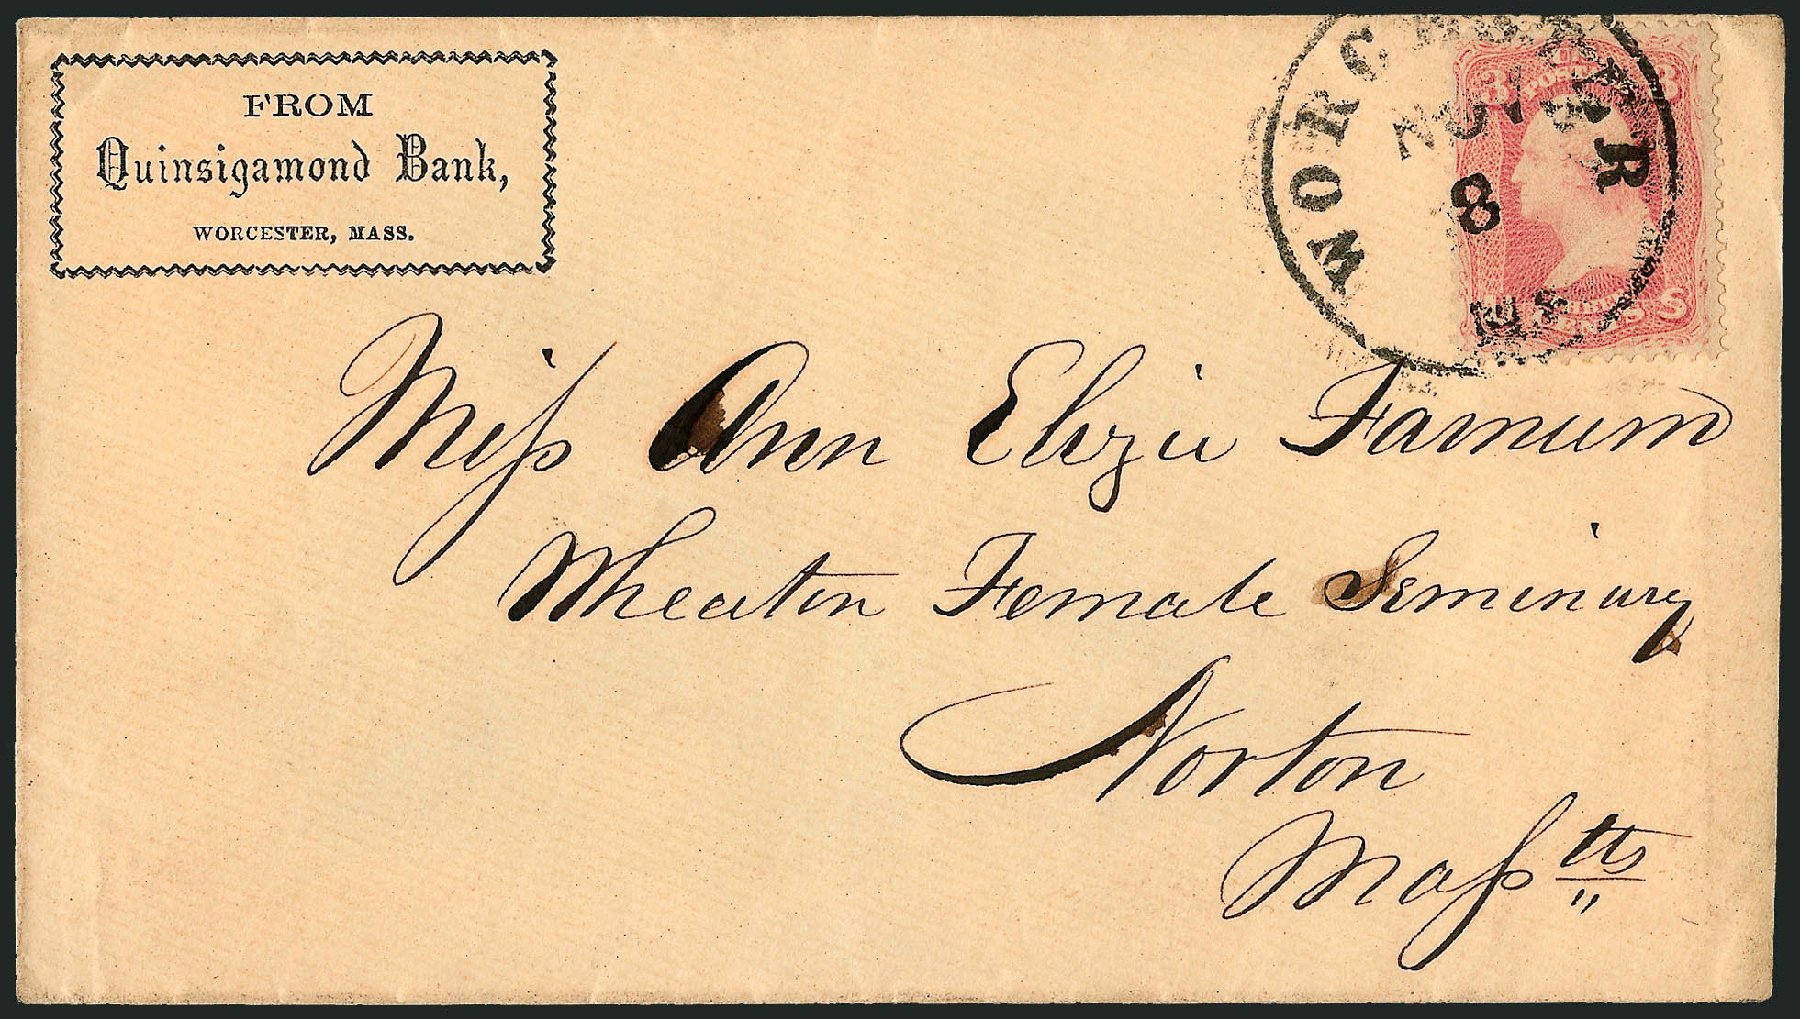 FROM
Quinsigamond Bank,
WORCESTER, MASS.
WORCESTER
NOV
8
MS
3 3
U
POST
CENTS
Miss Ann Elizie Farnum
Wheaton Female Seminary
Norton
Masstts